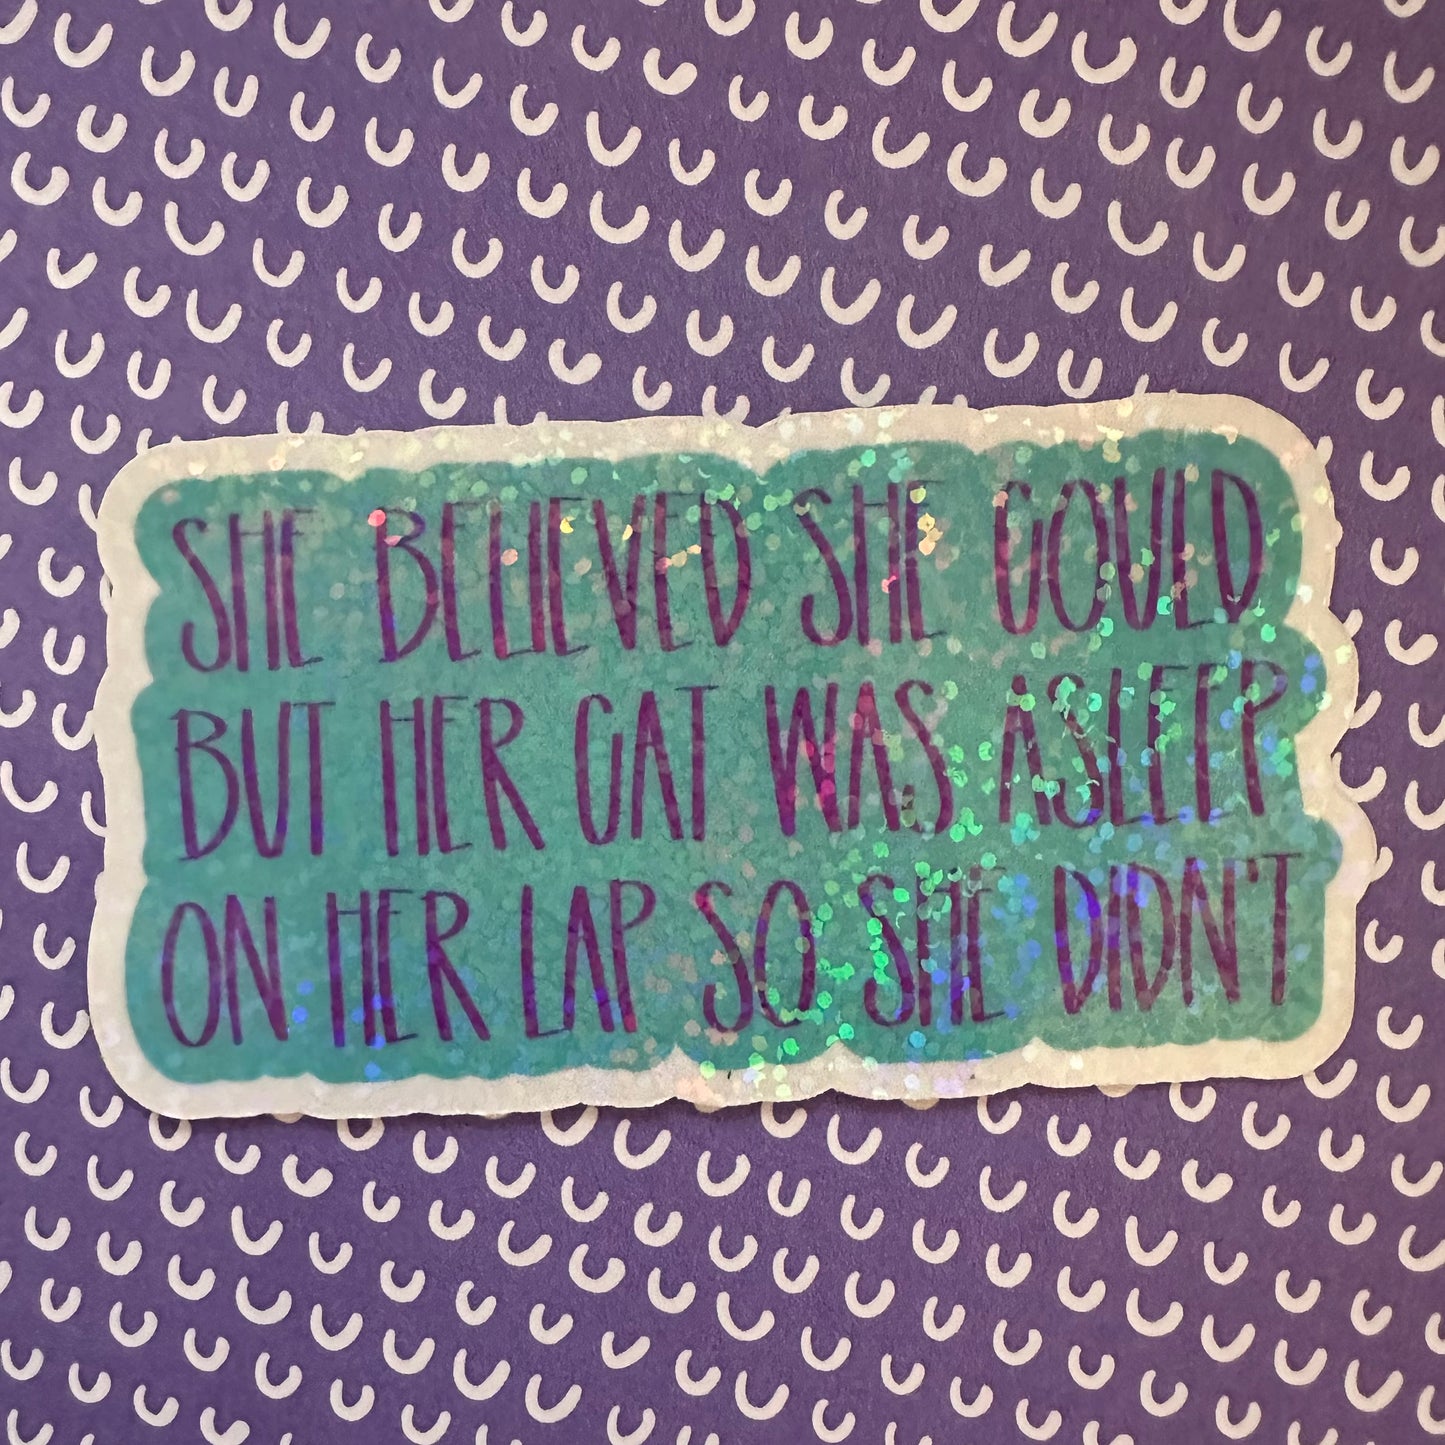 SHE BELIEVED SHE COULD
BUT HER CAT WAS ASLEEP
ON HER LAP SO SHE DIDN'T